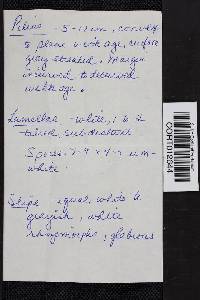 Pileus - 5-12 cm, convex
to plane with age, surface
gray striated. Margin
incurved to decurved
with age.
Lamellae - white, 1 to 2
tiered, subdistant
Spores - 7-9 x 4-5 um -
white.
Stipe equal, white to
grayish, white
rhizomorphs, glabrous
COFH1012644